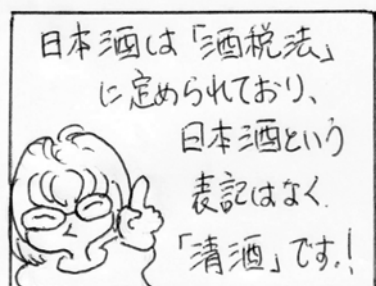 日本酒は「酒税法」
に定められており、
日本酒という
表記はなく.
「清酒」です。!